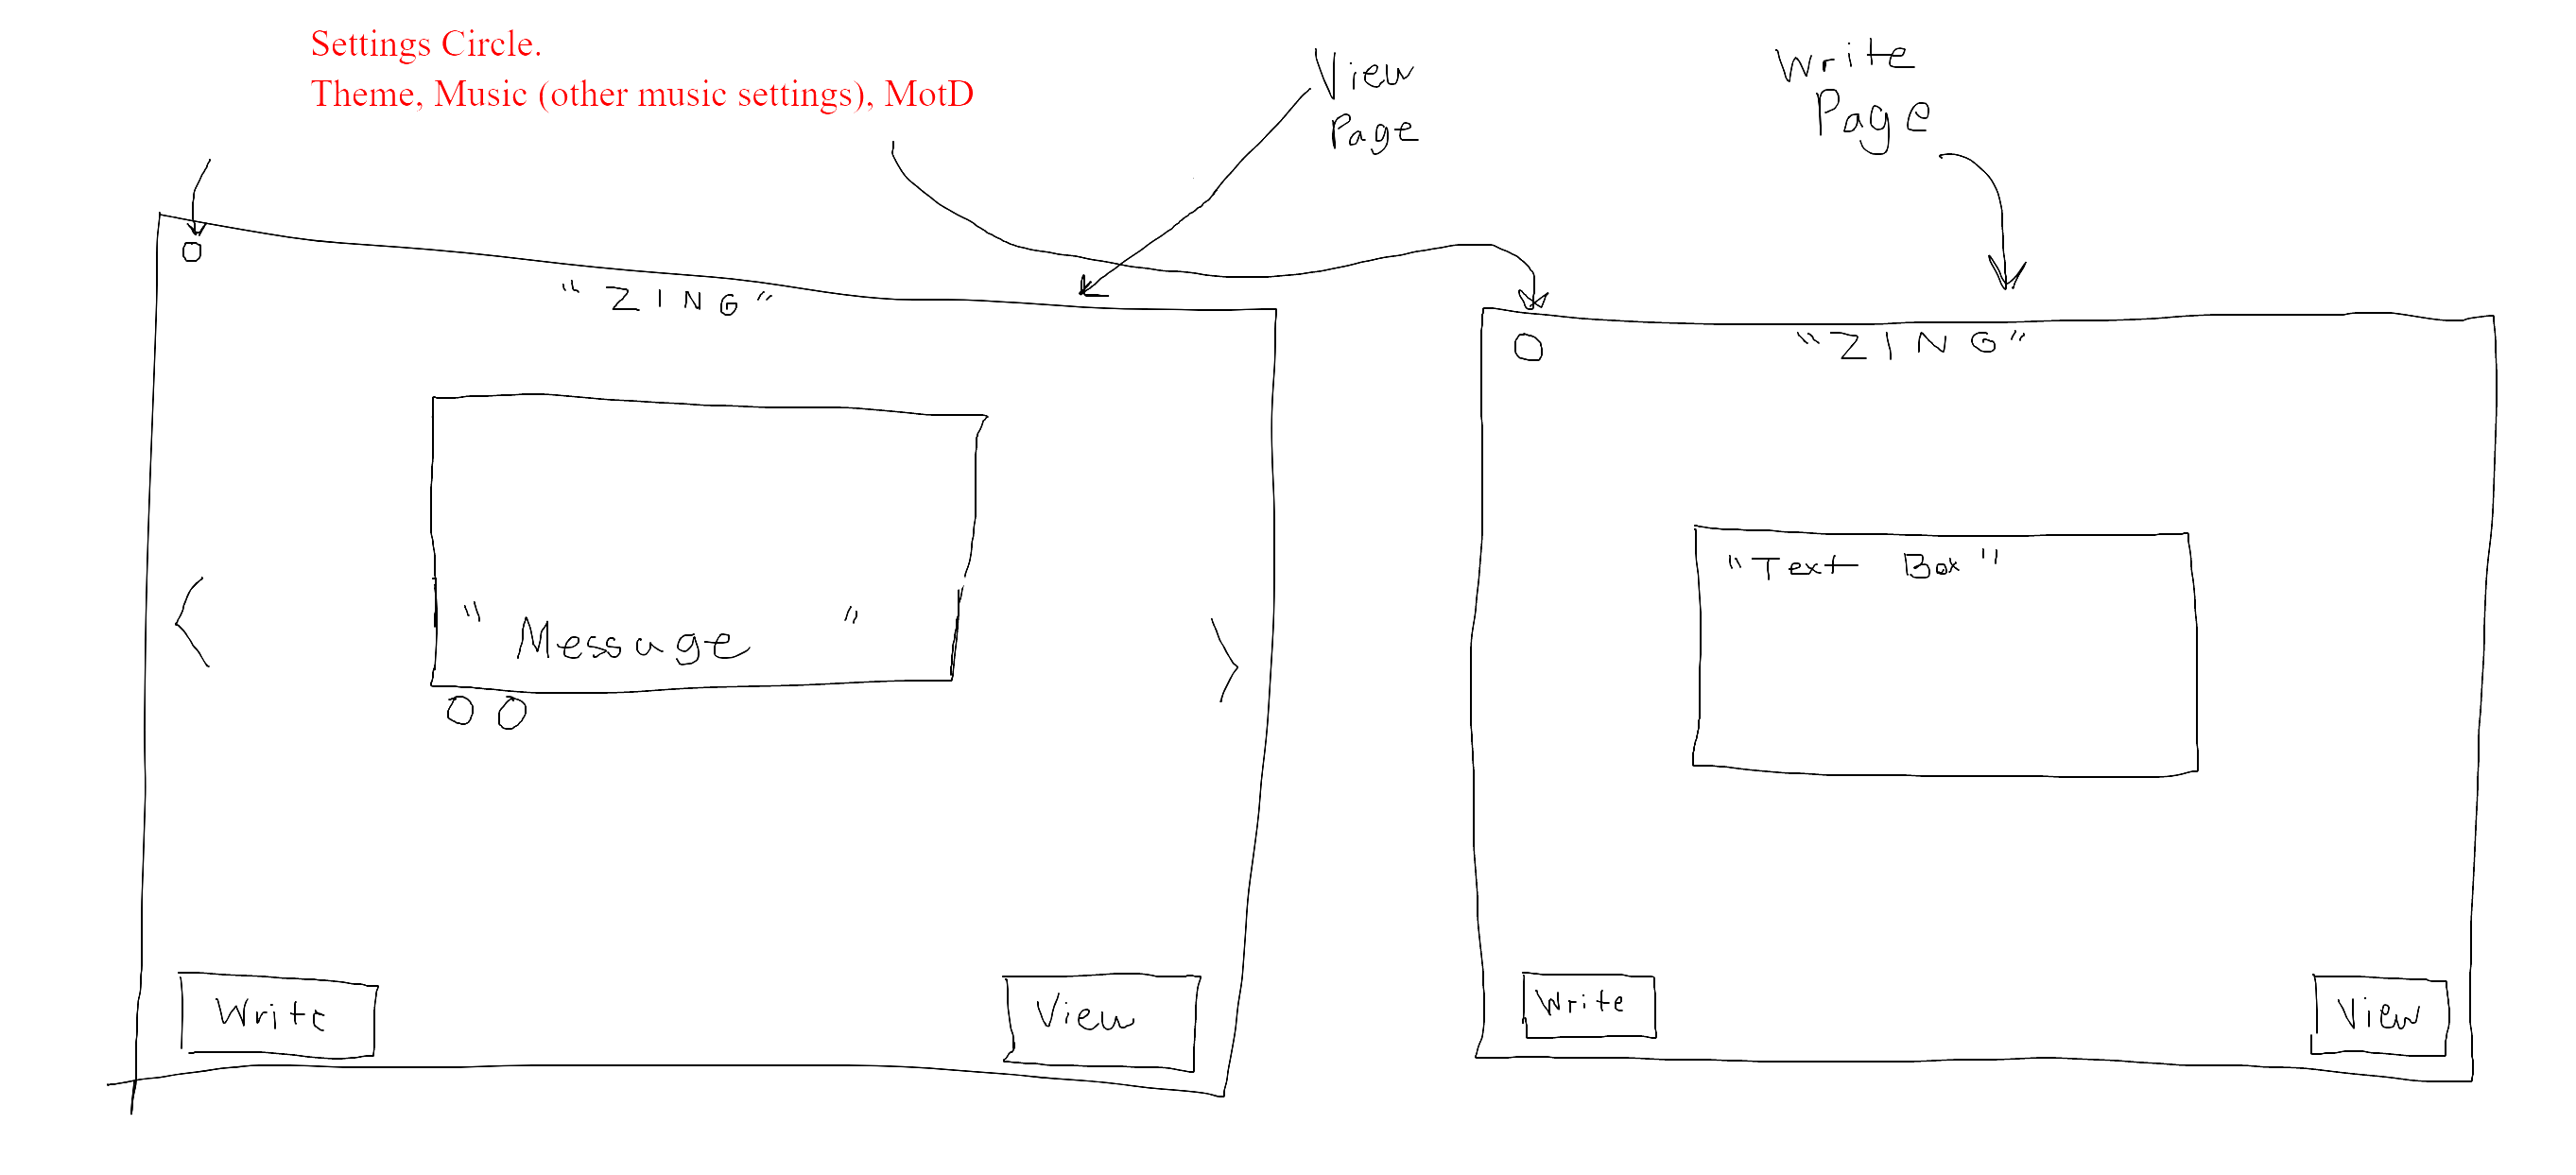 Settings Circle.
Theme, Music (other music settings), MotD
View
Page
Write
Page
"ZING"
"Message"
Write
View
"ZING"
"Text Box"
Write
View